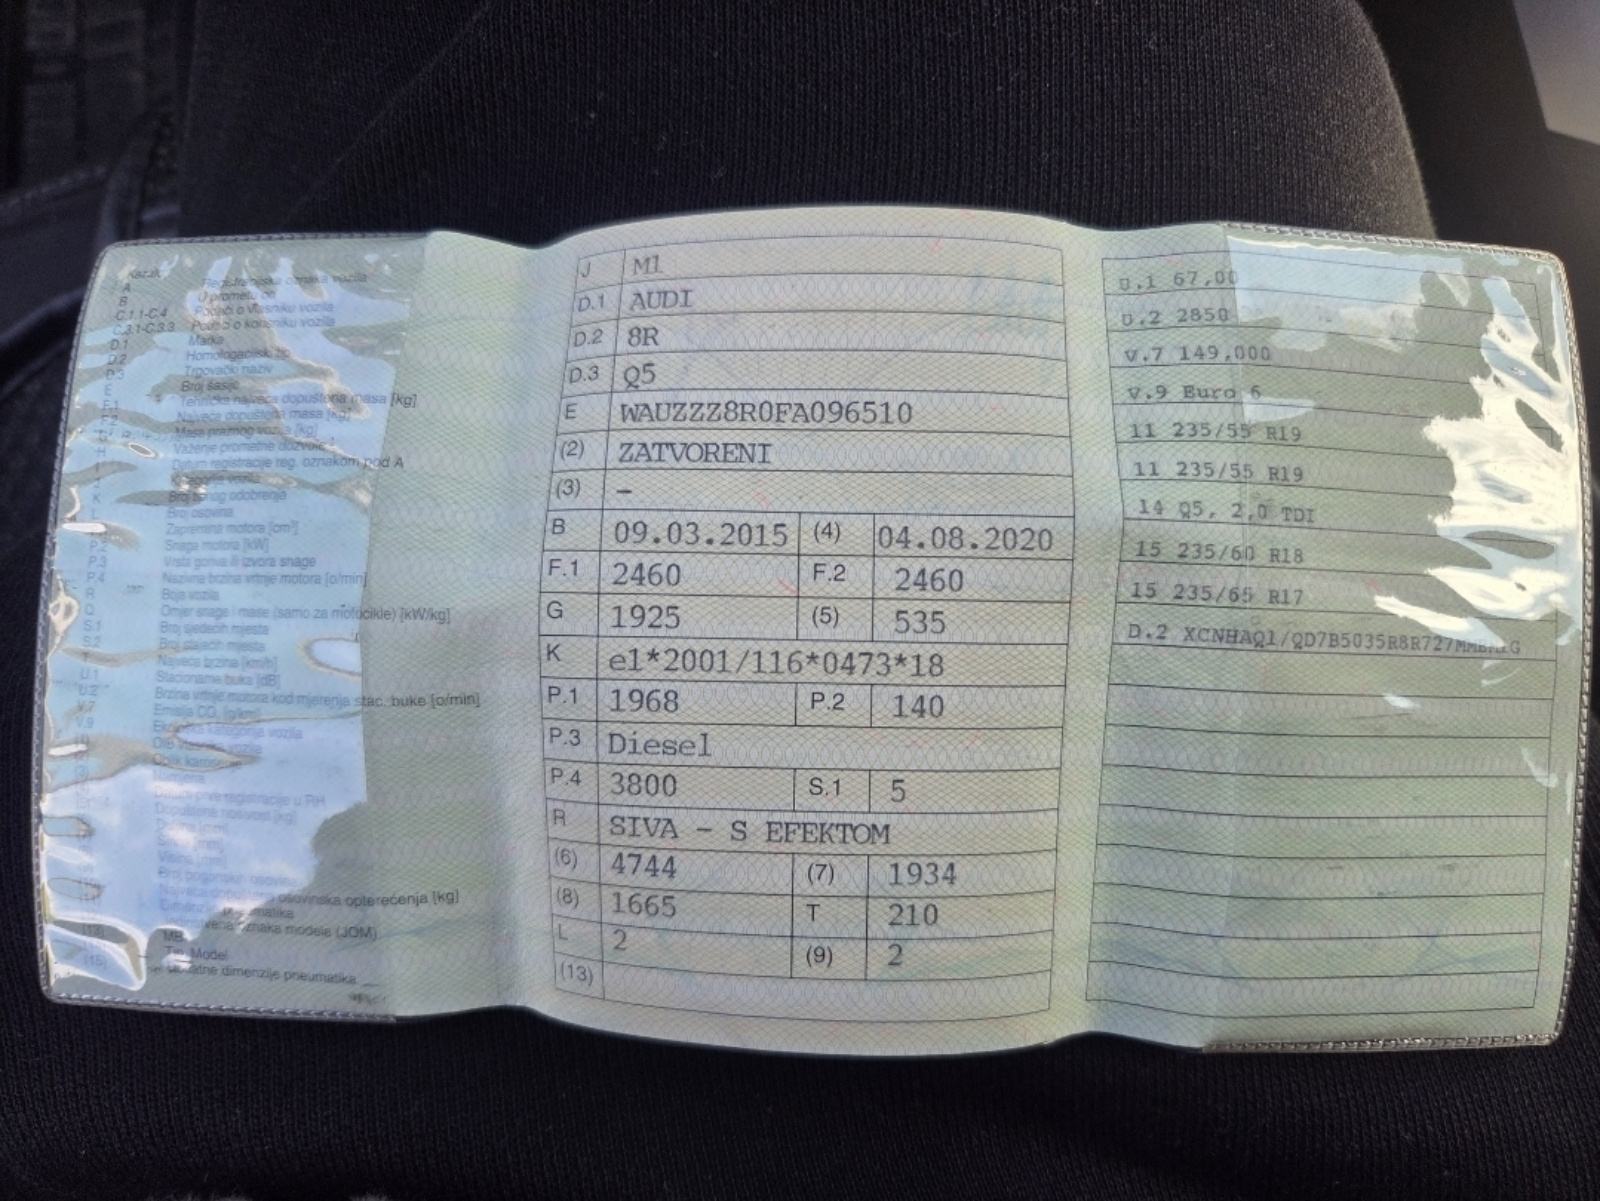 A Registracijska oznaka vozila
B U prometu od
C.1.1-C.4 Podaci o vlasniku vozila
C.3.1-C.3.3 Podaci o korisniku vozila
D.1 Marka
D.2 Homologacijski tip
D.3 Trgovački naziv
E Broj šasije
F.1 Tehnička najveća dopuštena masa [kg]
F.2 Najveća dopuštena masa [kg]
Masa praznog vozila [kg]
H Važenje prometne dozvole
Datum registracije reg. oznakom pod A
Kategorija vozila
K Broj odobrenja
L Broj osovina
Zapremina motora [cm³]
P.2 Snaga motora [kW]
P.3 Vrsta goriva ili izvora snage
P.4 Nazivna brzina vrtnje motora [o/min]
R Boja vozila
Q Omjer snage i mase (samo za motocikle) [kW/kg]
S.1 Broj sjedećih mjesta
S.2 Broj stajaćih mjesta
T Najveća brzina [km/h]
U.1 Stacionarna buka [dB]
U.2 Brzina vrtnje motora kod mjerenja stac. buke [o/min]
V.7 Emisija CO₂
V.9 Ekološka kategorija vozila
Oblik
Namjena
prve registracije u RH
Dopuštena nosivost [kg]
Visina [mm]
Broj pogonskih osovina
osovinska opterećenja [kg]
oznaka modela (JOM)
MB
(15) Tip, Model
dimenzije pneumatika
J M1
D.1 AUDI
D.2 8R
D.3 Q5
E WAUZZZ8R0FA096510
(2) ZATVORENI
(3) –
B 09.03.2015 (4) 04.08.2020
F.1 2460 F.2 2460
G 1925 (5) 535
K e1*2001/116*0473*18
P.1 1968 P.2 140
P.3 Diesel
P.4 3800 S.1 5
R SIVA - S EFEKTOM
(6) 4744 (7) 1934
(8) 1665 T 210
L 2 (9) 2
(13)
U.1 67,00
U.2 2850
V.7 149,000
V.9 Euro 6
11 235/55 R19
11 235/55 R19
14 Q5, 2,0 TDI
15 235/60 R18
15 235/65 R17
D.2